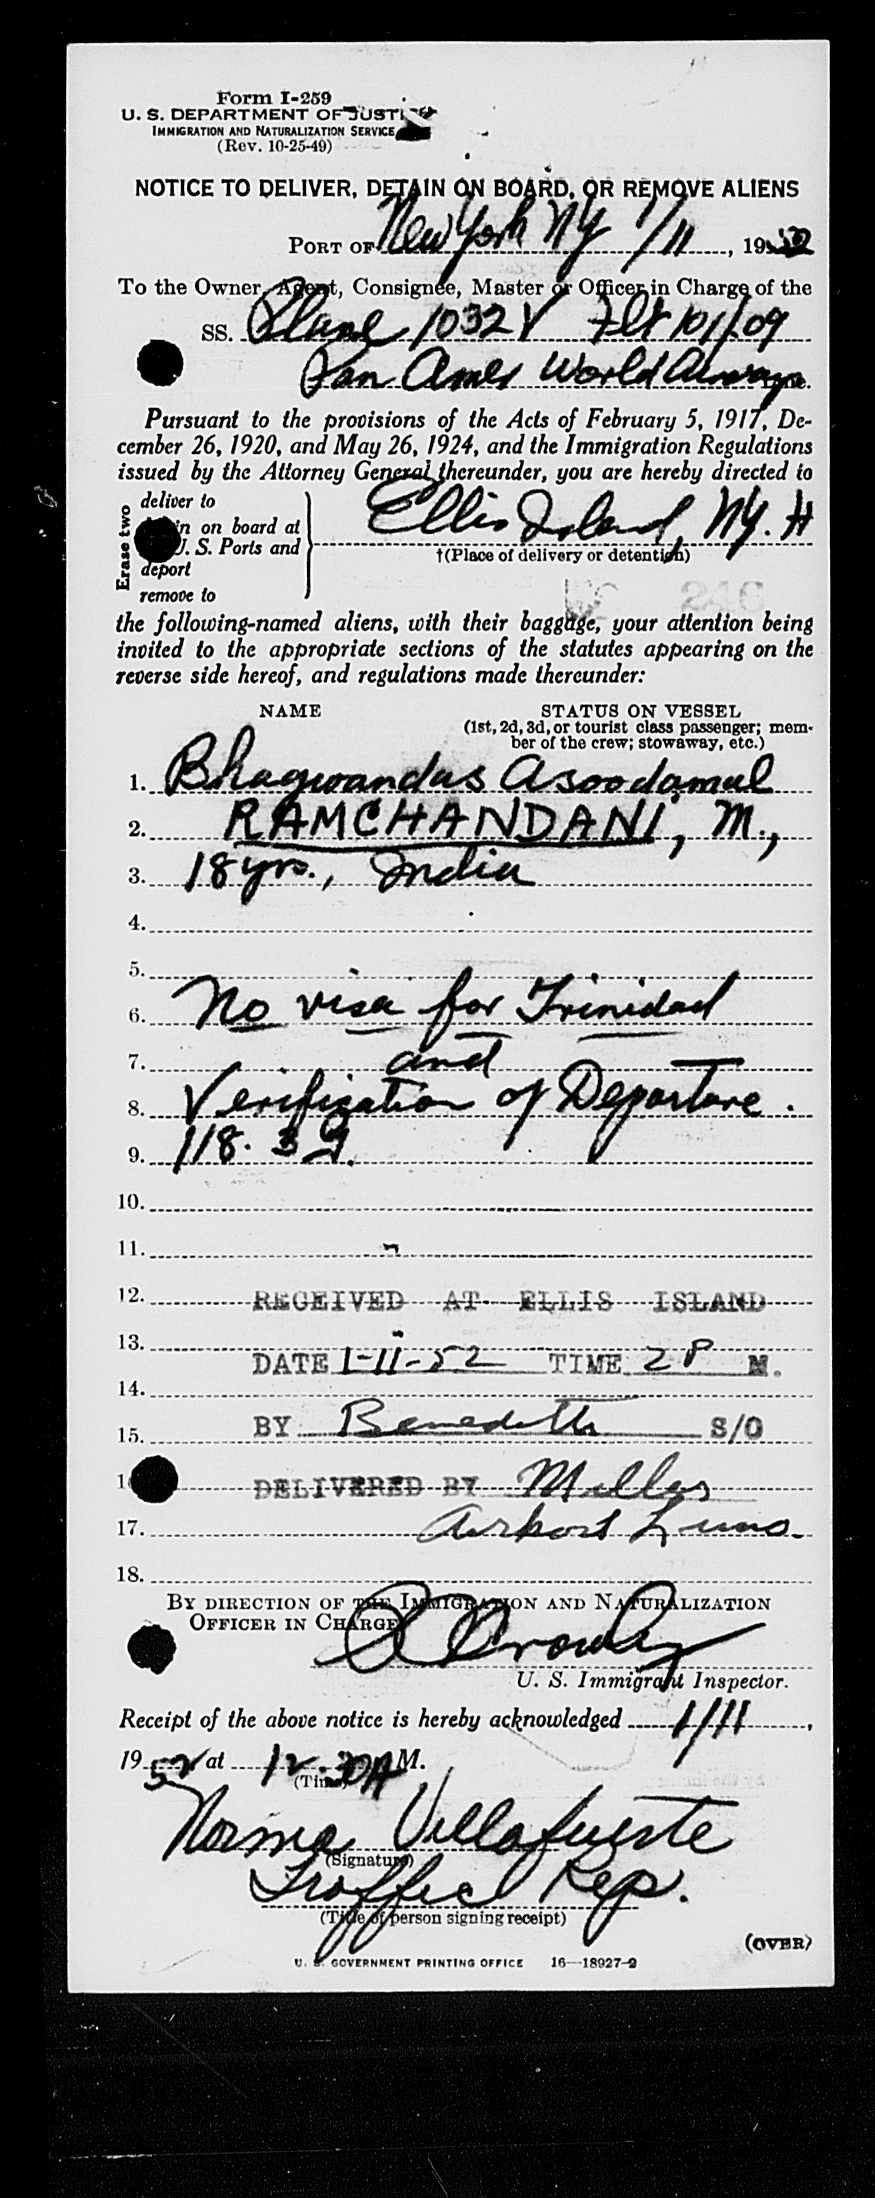 Form I-259
U. S. DEPARTMENT OF JUSTICE
IMMIGRATION AND NATURALIZATION SERVICE
(Rev. 10-25-49)
NOTICE TO DELIVER, DETAIN ON BOARD, OR REMOVE ALIENS
PORT OF New York NY 1/11, 1952
To the Owner, Agent, Consignee, Master or Officer in Charge of the
SS. Plane 1032 V Flt 101/09
Pan Amer World Airways
Pursuant to the provisions of the Acts of February 5, 1917, De-
cember 26, 1920, and May 26, 1924, and the Immigration Regulations
issued by the Attorney General thereunder, you are hereby directed to
Erase two
deliver to
in on board at
U. S. Ports and
deport
remove to
Ellis Island, NY. H
†(Place of delivery or detention)
246
the following-named aliens, with their baggage, your attention being
invited to the appropriate sections of the statutes appearing on the
reverse side hereof, and regulations made thereunder:
NAME STATUS ON VESSEL
(1st, 2d, 3d, or tourist class passenger; mem-
ber of the crew; stowaway, etc.)
1. Bhagwandas Asoodamal
2. RAMCHANDANI, M.,
3. 18 yrs., India
4.
5.
6. No visa for Trinidad
7. and
8. Verification of Departure.
9. 118.
10.
11.
12. RECEIVED AT ELLIS ISLAND
13.
DATE 1-11-52 TIME 2 P M.
14.
15. BY S/O
DELIVERED BY
17. Airport
18.
BY DIRECTION OF THE IMMIGRATION AND NATURALIZATION
OFFICER IN CHARGE
U. S. Immigrant Inspector.
Receipt of the above notice is hereby acknowledged 1/11,
1952 at 12 AM.
(Time)
Norma Villafuerte
(Signature)
Traffic Rep.
(Title of person signing receipt)
(OVER)
U. S. GOVERNMENT PRINTING OFFICE 16—18927-2